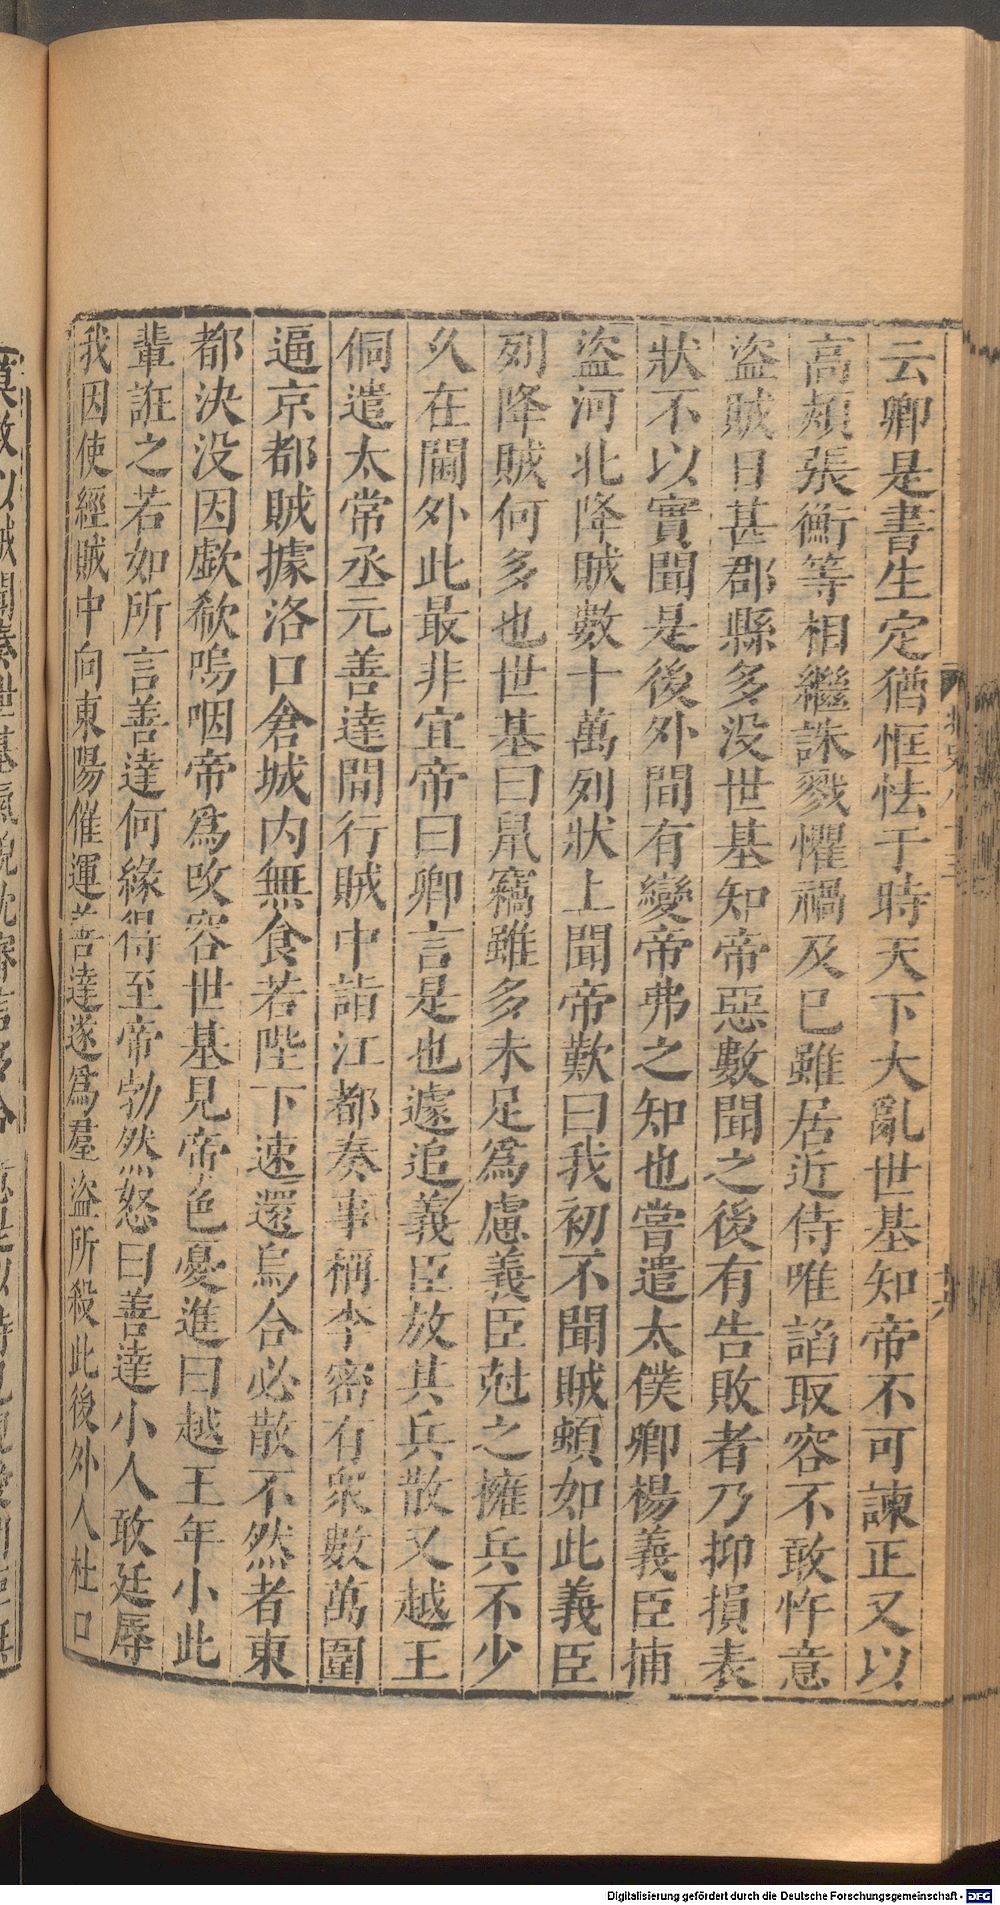 云卿是書生定猶恇怯于時天下大亂世基知帝不可諫正又以
高熲張衡等相繼誅戮懼禍及巳雖居近侍唯諂取容不敢忤意
盜賊日甚郡縣多没世基知帝惡數聞之後有告敗者乃抑損表
狀不以實聞是後外間有變帝弗之知也嘗遣太僕卿楊義臣捕
盜河北降賊數十萬列狀上聞帝歎曰我初不聞賊頓如此義臣
列降賊何多也世基曰鼠竊雖多未足爲慮義臣尅之擁兵不少
久在閫外此最非宜帝曰卿言是也遽追義臣放其兵散又越王
侗遣太常丞元善達間行賊中詣江都奏事稱李密有衆數萬圍
逼京都賊據洛口倉城内無食若陛下速還烏合必散不然者東
都決没因歔欷嗚咽帝爲改容世基見帝色憂進曰越王年小此
輩誑之若如所言善達何緣得至帝勃然怒曰善達小人敢廷辱
我因使經賊中向東陽催運善達遂爲羣盜所殺此後外人杜口
Digitalisierung gefördert durch die Deutsche Forschungsgemeinschaft - DFG